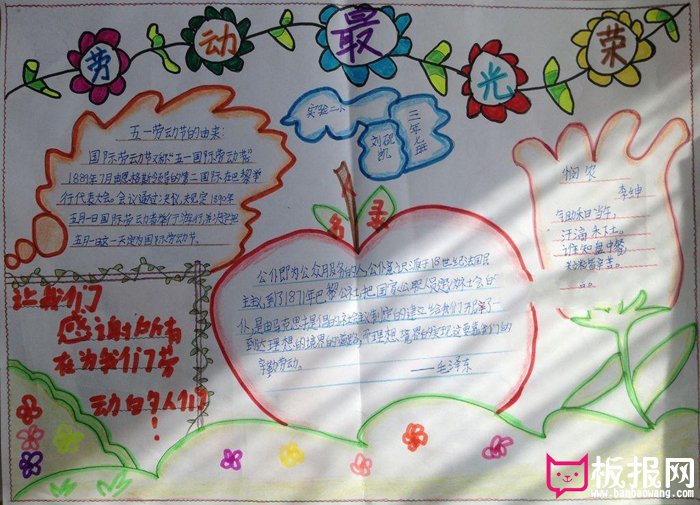 劳动最光荣
五一劳动节的由来:
国际劳动节又称“五一国际劳动节”
1889年7月由恩格斯领导的第二国际在巴黎举
行代表大会。会议通过决议,决规定1890年
五月一日国际劳动者举行游行,
五月一日这一天定为国际劳动节。
实验二小
三年七班
刘砚凯
悯农
李绅
锄禾日当午,
汗滴禾下土。
谁知盘中餐
粒粒皆辛苦。
让我们
感谢所有
在为我们劳
动的人们
!
公仆即为公众服务的人,公仆意识源于18世纪法国民
主,到了1871年巴黎公社,把国家公职人员
到达理想的境界
辛勤劳动。
——毛泽东
板报网
www.banbaowang.com